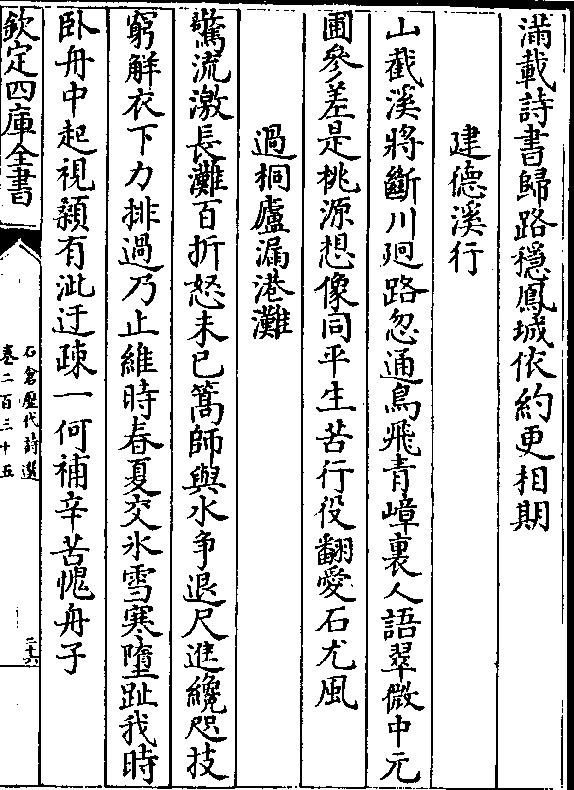 滿載詩書歸路穩鳳城依約更相期
建德溪行
山截溪將斷川廻路忽通鳥飛青嶂裏人語翠微中元
圃參差是桃源想像同平生苦行役翻愛石尤風
過桐廬漏港灘
驚流激長灘百折怒未已篙師與水争退尺進纔咫技
窮解衣下力排過乃止維時春夏交氷雪寒墮趾我時
卧舟中起視顙有泚迂疎一何補辛苦愧舟子
欽定四庫全書
石倉歷代詩選
卷二百三十五
二十六